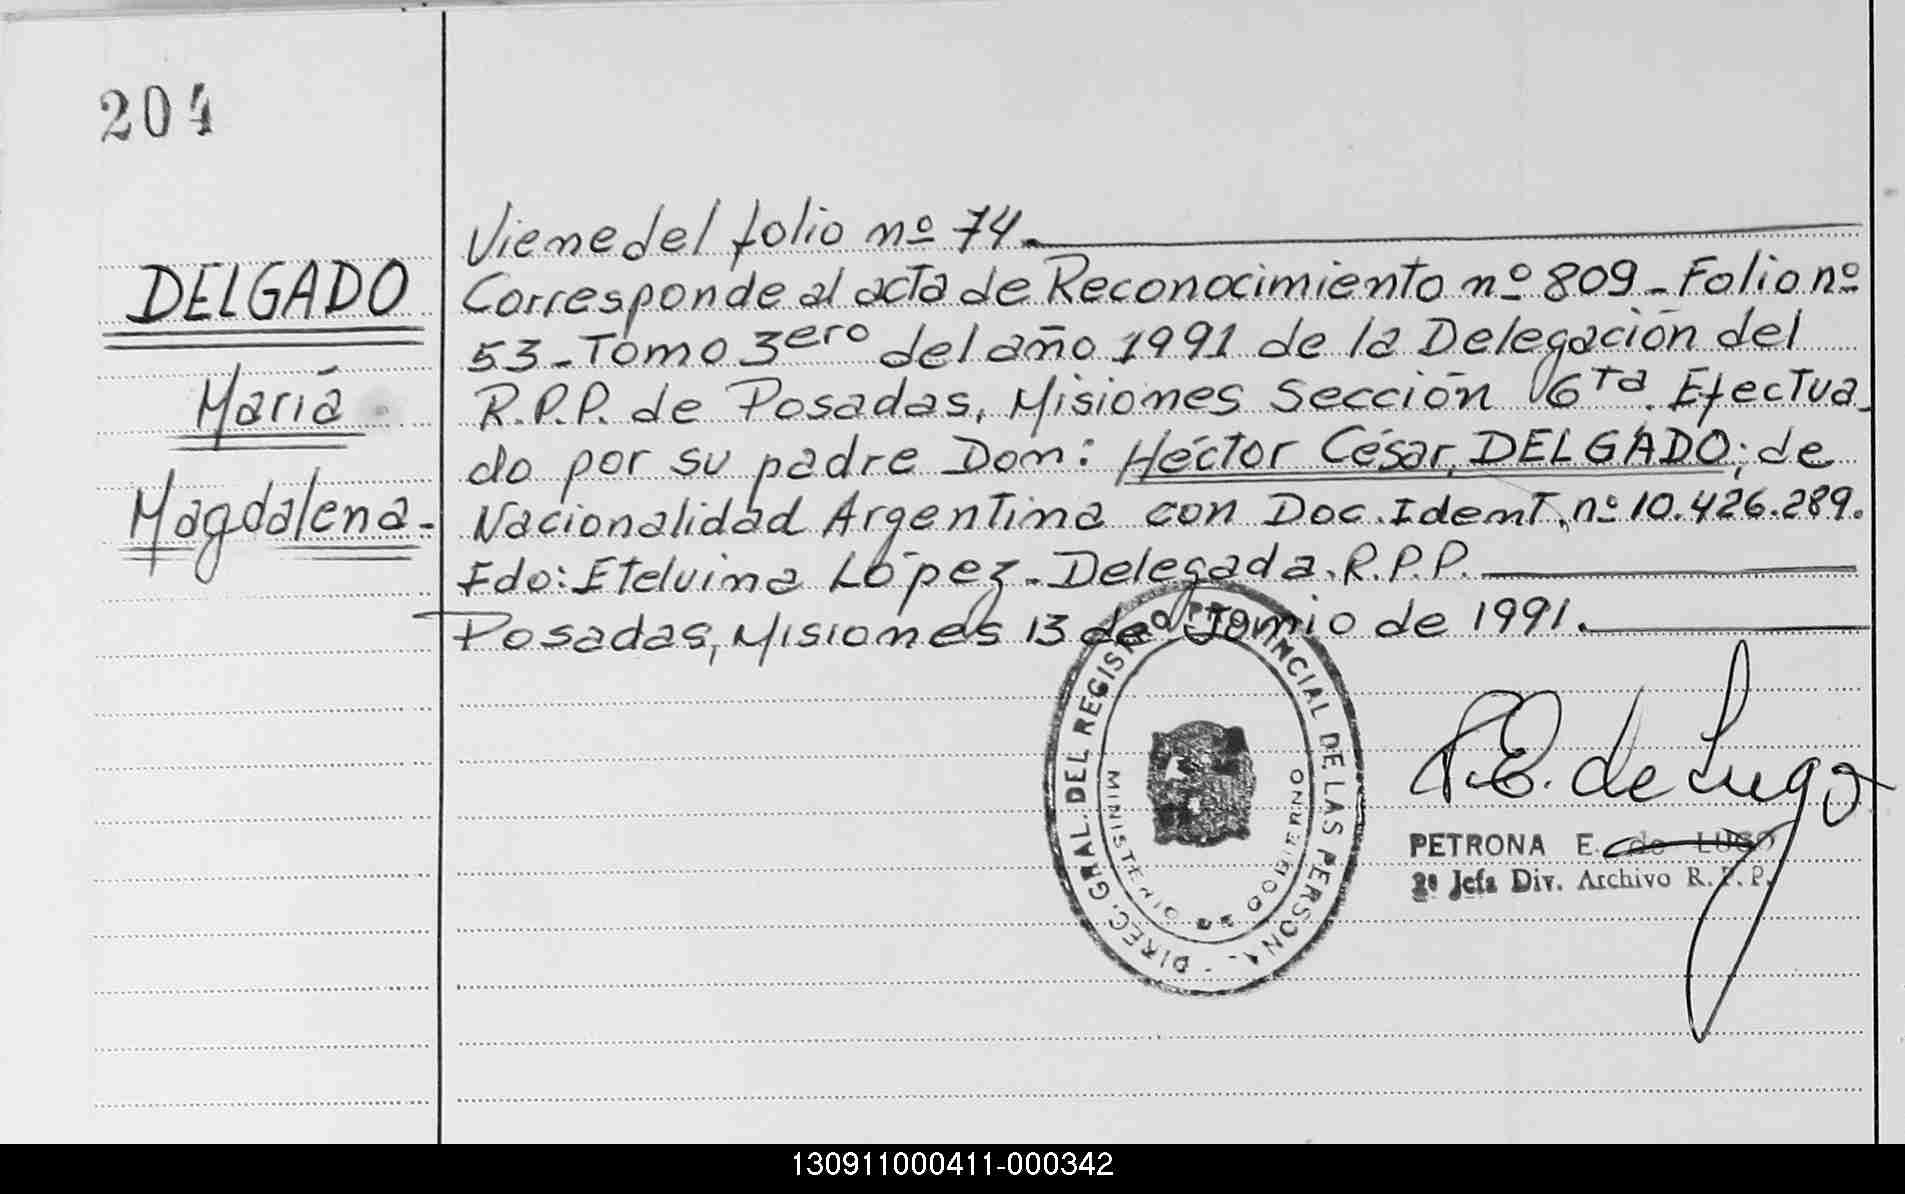 204
DELGADO
María
Magdalena.
Viene del folio nº 74.
Corresponde al acta de Reconocimiento nº 809_Folio nº
53_Tomo 3ero del año 1991 de la Delegación del
R.P.P. de Posadas, Misiones Sección 6ta. Efectua_
do por su padre Don: Héctor César, DELGADO; de
Nacionalidad Argentina con Doc. Ident. nº 10.426.289.
Fdo: Etelvina López. Delegada. R.P.P.
Posadas, Misiones 13 de Junio de 1991.
DIREC. GRAL. DEL REGISTRO PROVINCIAL DE LAS PERSONA
MINISTERIO DE GOBIERNO
P.E. de Lugo
PETRONA E. de LUGO
2ª Jefa Div. Archivo R.P.P.
130911000411-000342